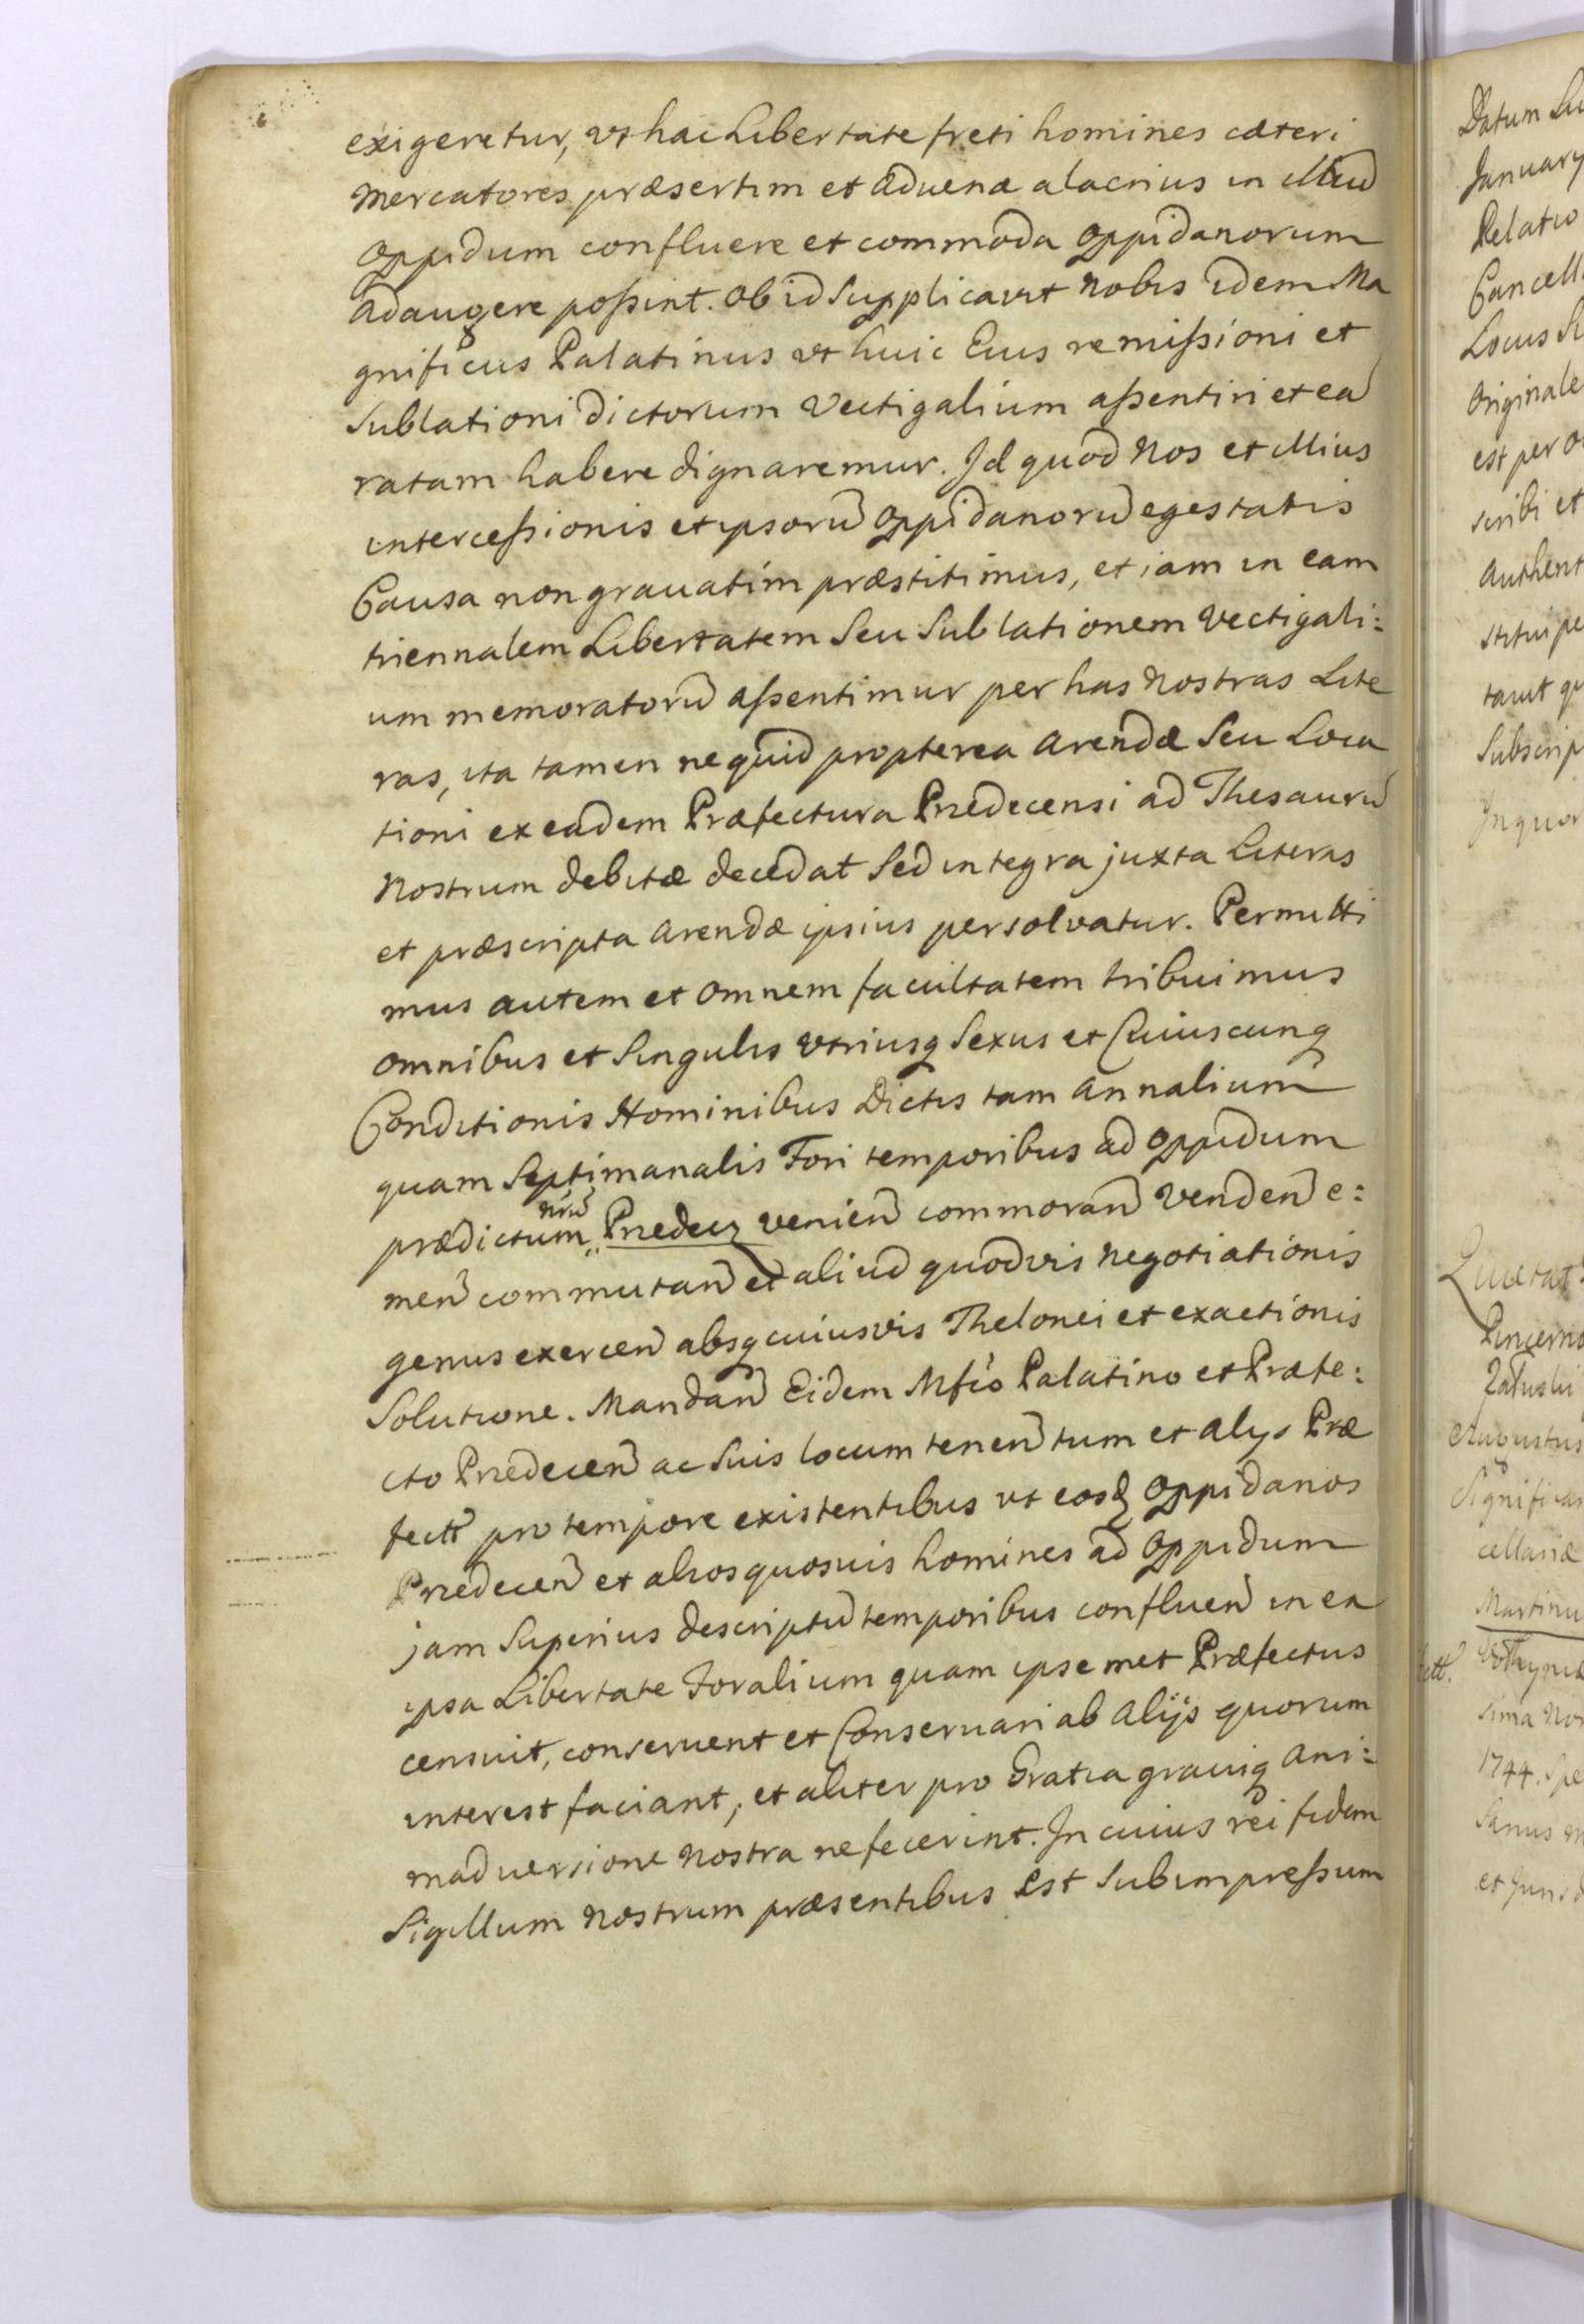 exigeretur, vt hac Libertate freti homines cæteri
Mercatores præsertim et Aduenæ alacrius in illud
Oppidum confluere et commoda Oppidanorum
adaugere poßint. Ob id Supplicavit Nobis idem Ma
gnificus Palatinus vt huic Eius remißioni et
Sublationi dictorum Vectigalium aßentiri et ea
ratam habere dignaremur. Id quod Nos et illius
interceßionis et ipsorũ Oppidanorũ egestatis
Causa non grauatim præstitimus, et iam in eam
triennalem Libertatem Seu Sublationem Vectigali:
um memoratorũ aßentimur per has Nostras Lite
ras, ita tamen ne quid propterea Arendæ Seu Loca
tioni ex eadem Præfectura Przedecensi ad Thesaurũ
Nostrum debitæ decedat Sed integra juxta Literas
et præscripta Arendæ ipsius persolvatur. Permitti
mus autem et Omnem facultatem tribuimus
Omnibus et Singulis Vtriusq Sexus et Cuiuscunq
Conditionis Hominibus Dictis tam Annalium
quam Septimanalis Fori temporibus ad Oppidum
nrũ
prædictum „ Przedecz venieñ commorañ Vendeñ e:
meñ commutañ et aliud quodvis Negotiationis
genus exerceñ absq cuiusvis Thelonei et exactionis
Solutione. Mandañ Eidem Mfco Palatino et Præfe:
cto Przedeceñ ac Suis locum teneñtum et alys Præ
fectt pro tempore existentibus vt eosd Oppidanos
Przedeceñ et alios quosuis homines ad Oppidum
jam Superius descriptũ temporibus conflueñ in ea
ipsa Libertate Foralium quam ipsemet Præfectus
censuit, conseruent et Conseruari ab Alijs quorum
interest faciant, et aliter pro Gratia grauiq Ani:
maduersione Nostra ne fecerint. In cuius rei fidem
Sigillum Nostrum præsentibus Est Subimpreßum
Datum
January
Relatio
Cancell
Locus
Originale
est per
scribi et
Authent
Subscrip
In quor
Augustus
cellariæ
Martinu
sima
1744.